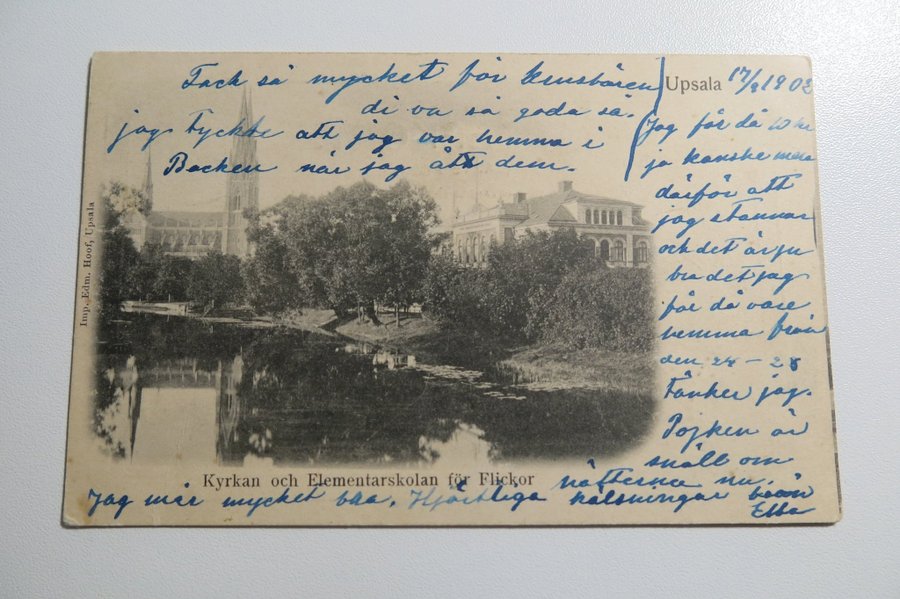 Tack så mycket för
di va så goda så.
jag tyckte att jag var hemma i
Backen när jag ått dem.
Upsala 17/9 1902
Jag får då 10 kr
ja kanske mera
därför att
jag stannar
och det är ju
bra det jag
får då vara
hemma från
den 24 - 28
Tänker jag.
Pojken är
snäll om
nätterna nu.
Jag mår mycket bra. Hjärtliga hälsningar från
Ebba
Kyrkan och Elementarskolan för Flickor
Imp. Edm. Hoof, Upsala